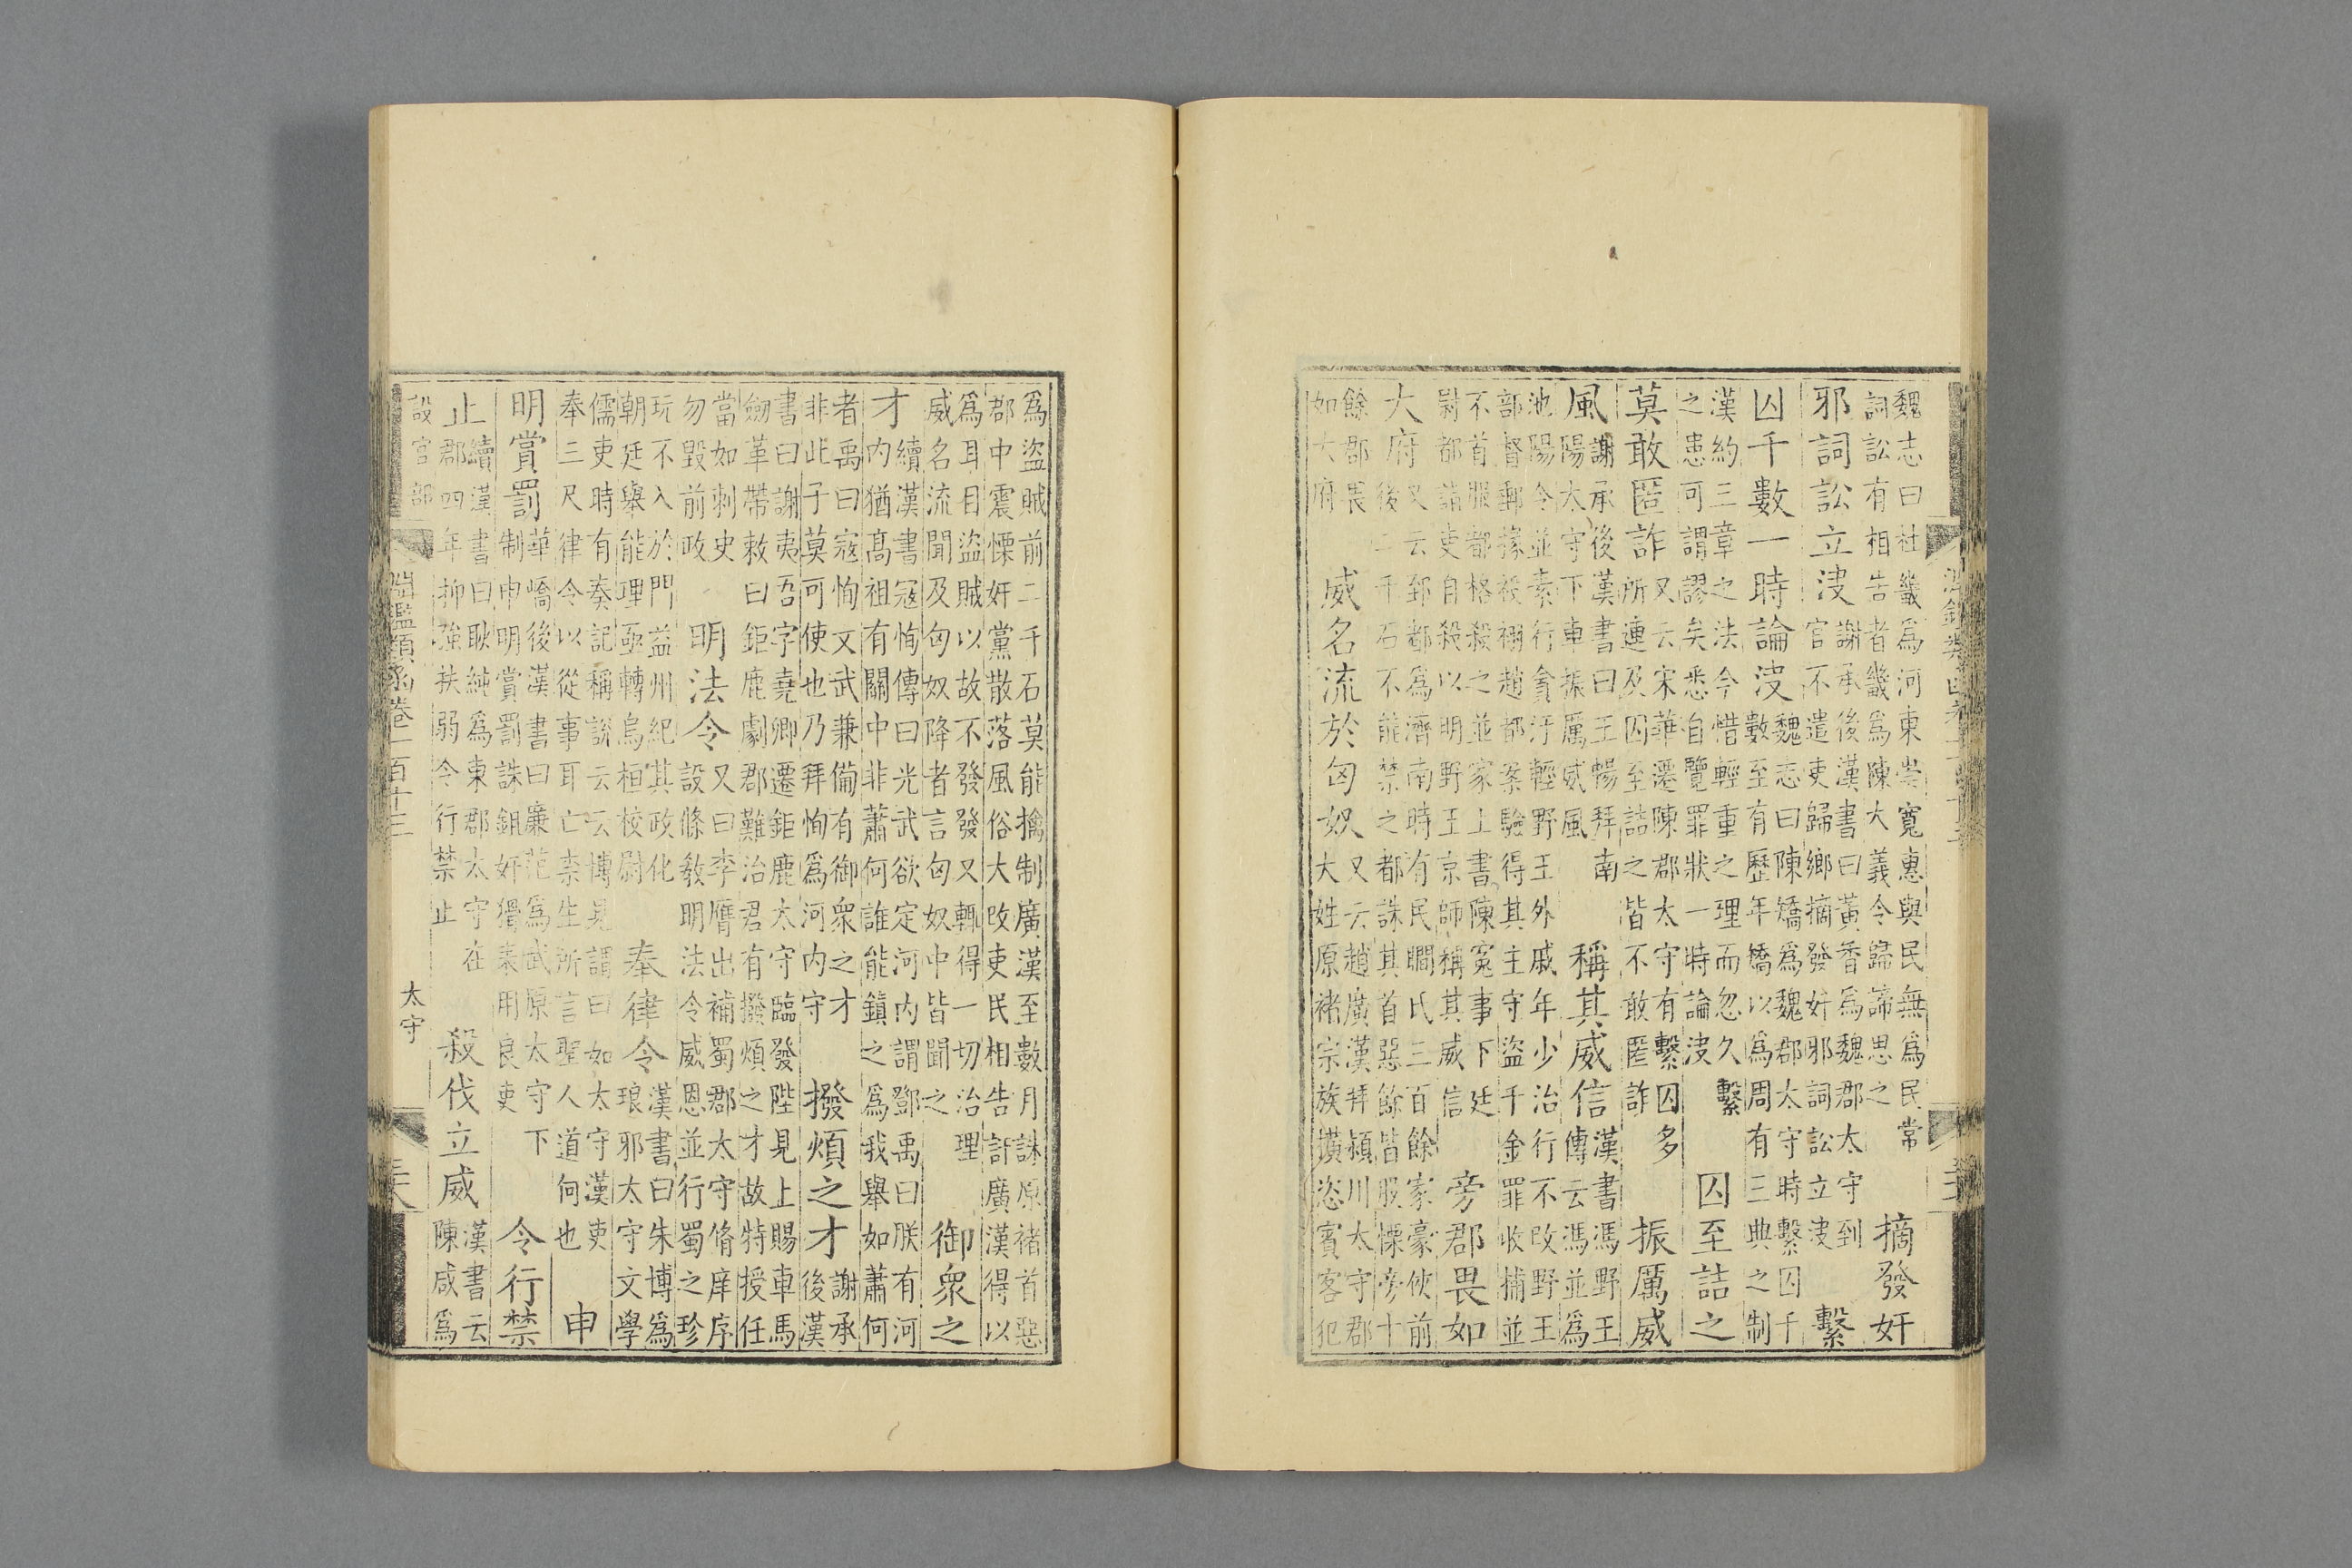 魏志曰杜畿爲河東崇寬惠與民無爲民常
詞訟有相告者畿爲陳大義令歸諦思之
摘發奸
邪詞訟立決
謝承後漢書曰黃香爲魏郡太守到
官不遣吏歸鄉摘發奸邪詞訟立決
繫
囚千數一時論決
魏志曰陳矯爲魏郡太守時繫囚千
數至有歷年矯以爲周有三典之制
漢約三章之法今惜輕重之理而忽久繫
之患可謂謬矣悉自覽罪狀一時論決
囚至詰之
莫敢匿詐
又云宋華遷陳郡太守有繫囚多
所連及囚至詰之皆不敢匿詐
振厲威
風
謝承後漢書曰王暢拜南
陽太守下車振厲威風
稱其威信
漢書馮野王
傳云馮並爲
池陽令並素行貪汙輕野王外戚年少治行不改野王
部督郵掾祋祤趙都案驗得其主守盜千金罪收捕並
不首服都格殺之並家上書陳寃事下廷
尉都詣吏自殺以明野王京師稱其威信
旁郡畏如
大府
又云郅都爲濟南時有民瞯氏三百餘家豪俠前
後二千石不能禁之都誅其首惡餘皆股慄旁十
餘郡畏
如大府
威名流於匈奴
又云趙廣漢拜潁川太守郡
大姓原褚宗族橫恣賓客犯
爲盜賊前二千石莫能擒制廣漢至數月誅原褚首惡
郡中震慄奸黨散落風俗大改吏民相告訐廣漢得以
爲耳目盜賊以故不發發又輒得一切治理
威名流聞及匈奴降者言匈奴中皆聞之
御衆之
才
續漢書寇恂傳曰光武欲定河内謂鄧禹曰朕有河
内猶髙祖有關中非蕭何誰能鎮之爲我舉如蕭何
者禹曰寇恂文武兼備有御衆之才
非此子莫可使也乃拜恂爲河内守
撥煩之才
謝承
後漢
書曰謝夷吾字堯卿遷鉅鹿太守臨發陛見上賜車馬
劒革帶敕曰鉅鹿劇郡難治君有撥煩之才故特授任
當如刺史
勿毀前政
明法令
又曰李膺出補蜀郡太守脩庠序
設條教明法令威恩並行蜀之珍
玩不入於門益州紀其政化
朝廷舉能理亟轉烏桓校尉
奉律令
漢書曰朱博爲
琅邪太守文學
儒吏時有奏記稱說云云博見謂曰如太守漢吏
奉三尺律令以從事耳亡柰生所言聖人道何也
申
明賞罰
華嶠後漢書曰廉范爲武原太守下
制申明賞罰誅鉏奸猾表用良吏
令行禁
止
續漢書曰耿純爲東郡太守在
郡四年抑強扶弱令行禁止
殺伐立威
漢書云
陳咸爲
設官部
淵鑑類函卷一百十三
太守